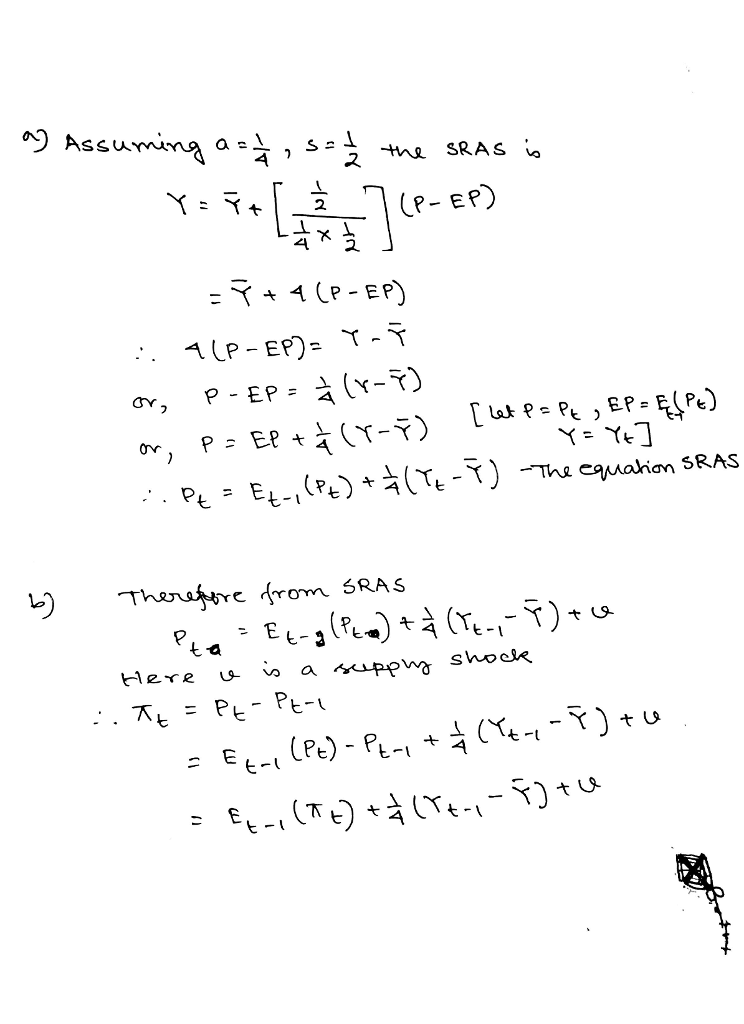 a) Assuming a = 1/4 , s = 1/2 the SRAS is
Y = Ȳ + [ (1/2) / (1/4 × 1/2) ] (P - EP)
= Ȳ + 4 (P - EP)
∴ 4 (P - EP) = Y - Ȳ
or, P - EP = 1/4 (Y - Ȳ)
or, P = EP + 1/4 (Y - Ȳ) [ Let P = Pt , EP = Et-1(Pt)
Y = Yt ]
∴ Pt = Et-1 (Pt) + 1/4 (Yt - Ȳ) - The equation SRAS
b) Therefore from SRAS
Pt = Et- (Pt) + 1/4 (Yt-1 - Ȳ) + υ
Here υ is a supply shock
∴ πt = Pt - Pt-1
= Et-1 (Pt) - Pt-1 + 1/4 (Yt-1 - Ȳ) + υ
= Et-1 (πt) + 1/4 (Yt-1 - Ȳ) + υ